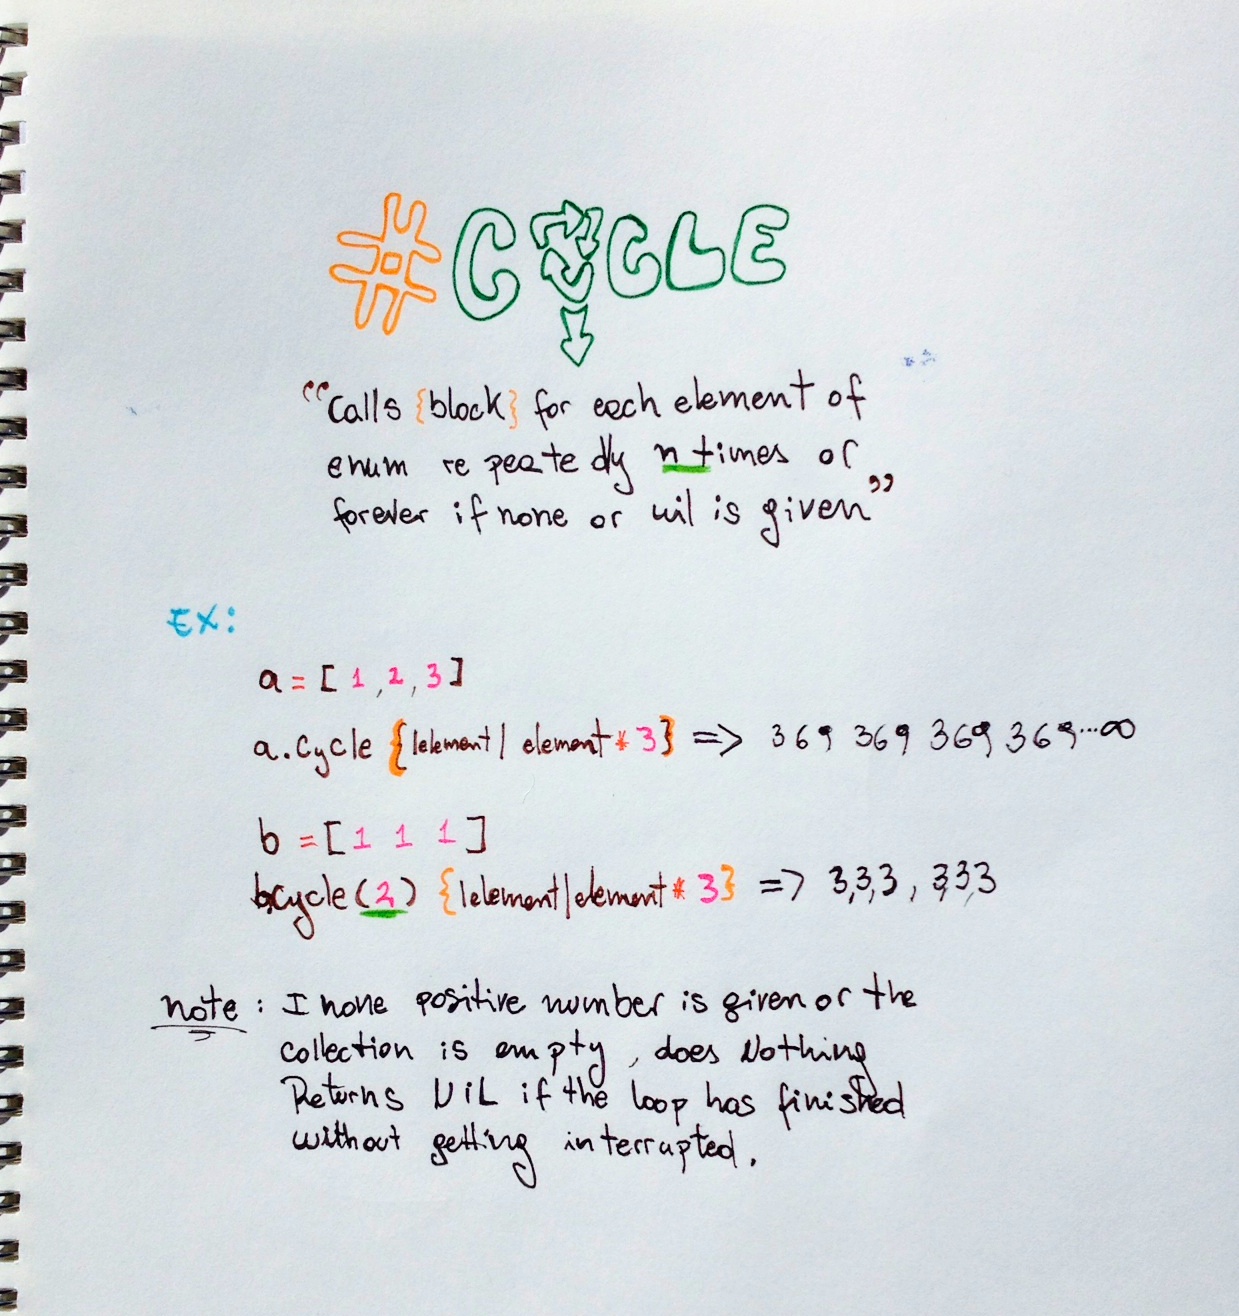 #CYCLE
“Calls {block} for each element of
enum repeatedly n times or
forever if none or nil is given”
EX:
a = [ 1 , 2 , 3 ]
a.cycle {|element| element * 3} => 369 369 369 369...∞
b = [ 1 1 1 ]
b.cycle (2) {|element| element * 3} => 3,3,3 , 3,3,3
note : I none positive number is given or the
collection is empty , does Nothing
Returns NiL if the loop has finished
without getting interrupted.